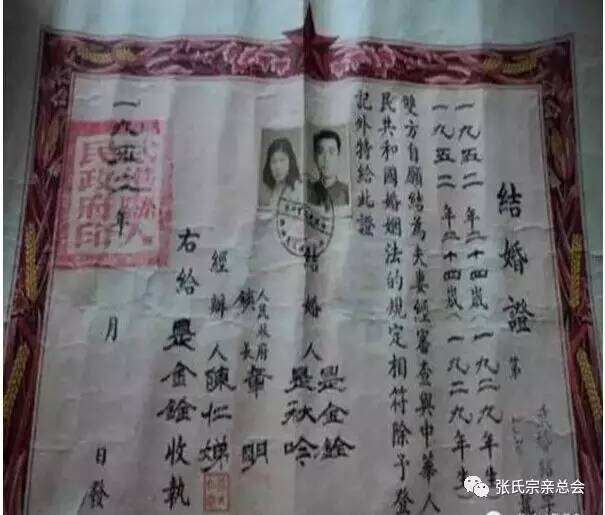 結婚證
第
一九五二年二十四歲(一九二九年生)
一九五二年二十四歲(一九二九年生)
雙方自願結為夫妻經審查與中華人
民共和國婚姻法的規定相符除予登
記外特給此證
結婚人 是金銓
是秋吟
人民政府
鎮長章明
經辦人陳仁娣
右給是金銓收執
一九五二年 月 日發
武進縣人民政府印
张氏宗亲总会